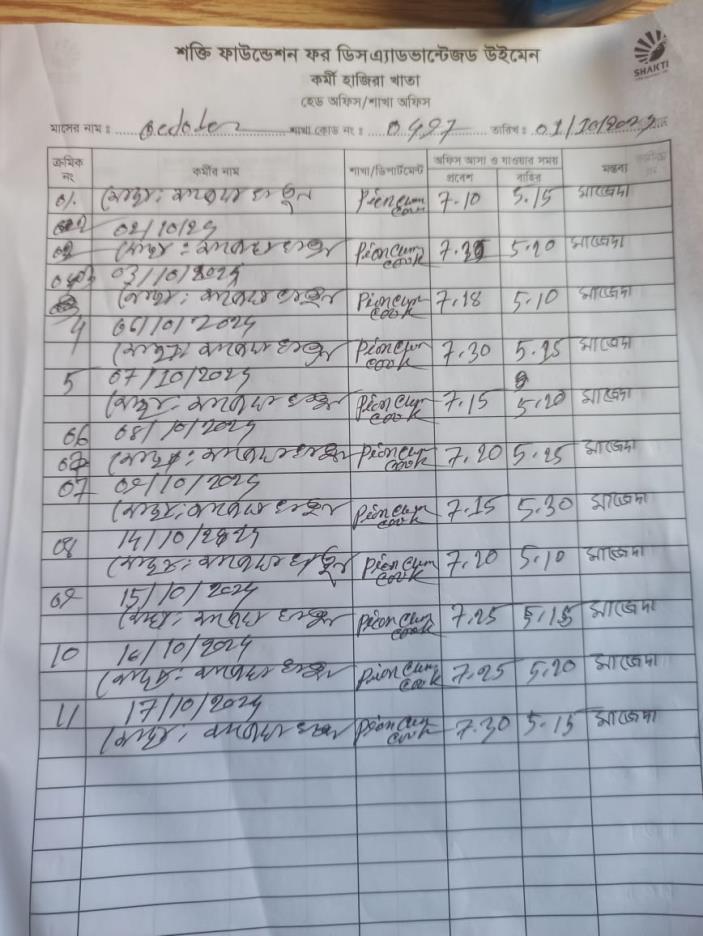 শক্তি ফাউন্ডেশন ফর ডিসএ্যাডভান্টেজড উইমেন
SHAKTI
কর্মী হাজিরা খাতা
হেড অফিস/শাখা অফিস
মাসের নাম : October শাখা কোড নং : 0497 তারিখ : 01/10/2024
ক্রমিক নং কর্মীর নাম শাখা/ডিপার্টমেন্ট অফিস আসা ও যাওয়ার সময় মন্তব্য
প্রবেশ বাহির
01. মোছা: খাতুন Pion cum cook 7.10 5.15 মাজেদা
02/10/24
02 মোছা: Pion cum cook 7.35 5.20 মাজেদা
03 03/10/2024
মোছা: Pion cum cook 7.18 5.10 মাজেদা
4 06/10/2024
মোছা: Pion cum cook 7.30 5.25 মাজেদা
5 07/10/2024
মোছা: Pion cum cook 7.15 5.20 মাজেদা
06 08/10/2024
মোছা: Pion cum cook 7.20 5.25 মাজেদা
07 09/10/2024
মোছা: Pion cum cook 7.15 5.30 মাজেদা
08 14/10/2024
মোছা: Pion cum cook 7.20 5.10 মাজেদা
09 15/10/2024
মোছা: Pion cum cook 7.25 5.15 মাজেদা
10 16/10/2024
মোছা: Pion cum cook 7.25 5.20 মাজেদা
11 17/10/2024
মোছা: Pion cum cook 7.30 5.15 মাজেদা